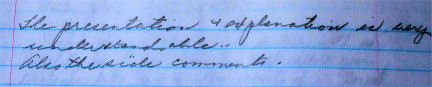 The presentation & explanation is very
understandable..
Also the side comments.